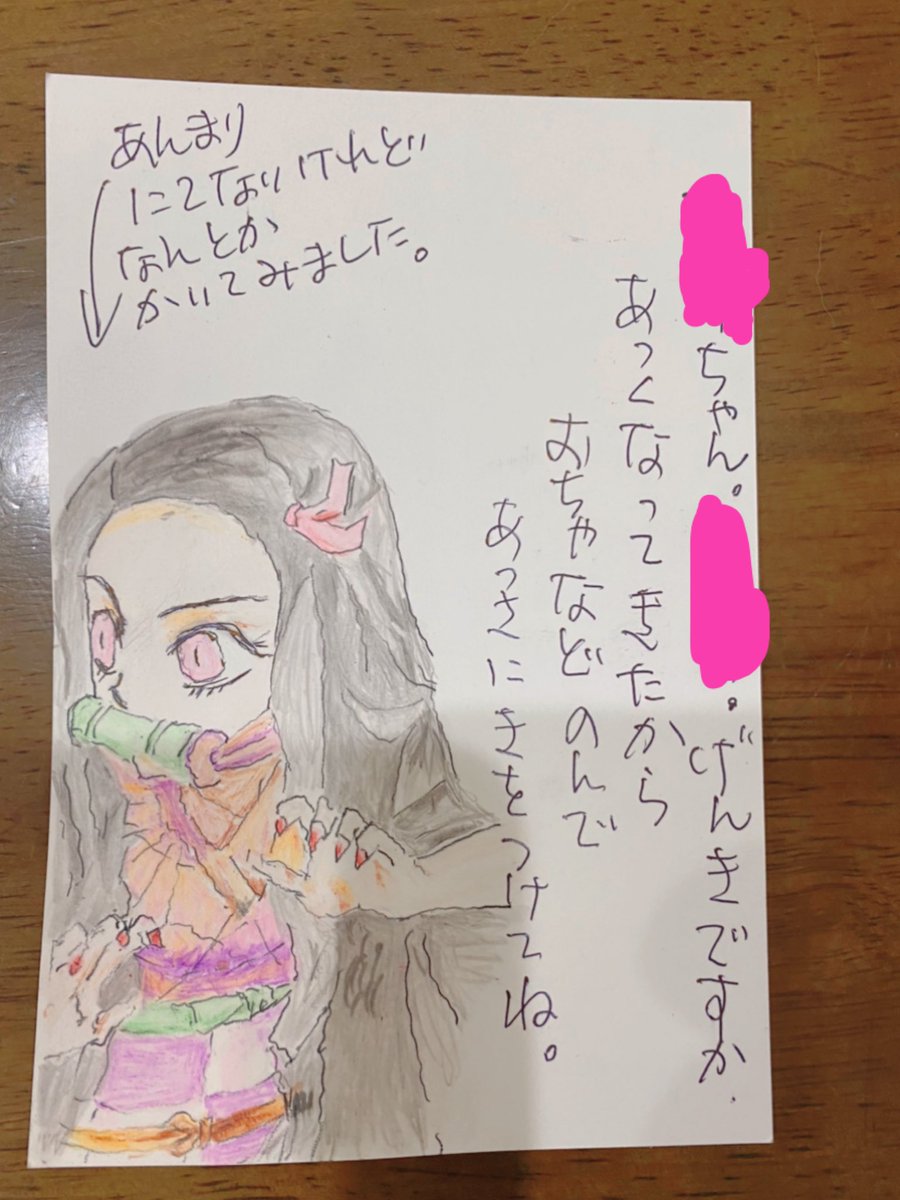 ちゃん。
。げんきですか
あつくなってきたから
おちゃなどのんで
あつさにきをつけてね。
あんまり
にてないけれど
なんとか
かいてみました。